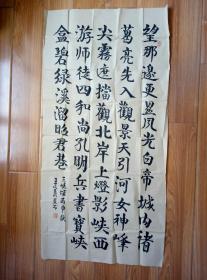 望那邊更是风光白帝城内诸
葛亮先入觀景天引河女神峰
尖霧迷擋觀北岸上燈影峽西
游师徒四和尚孔明兵書寶峽
盒碧绿溪溜昭君巷
三峡